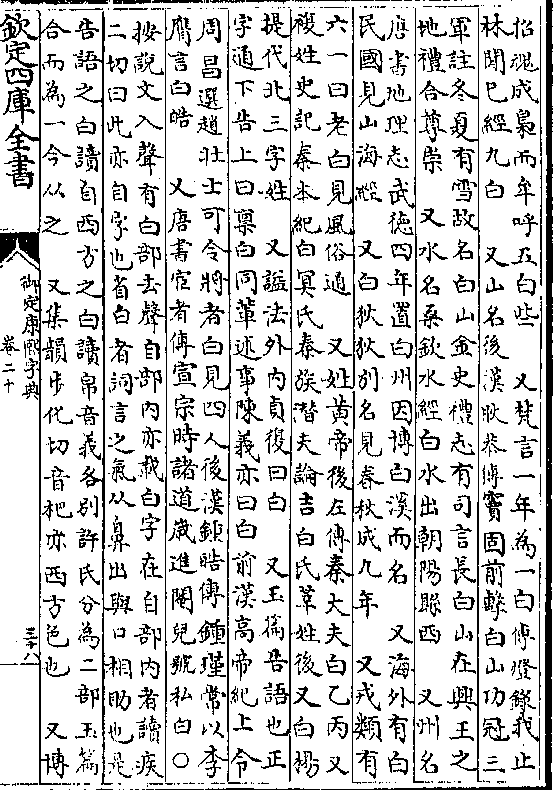 招魂成梟而牟呼五白些　又梵言一年為一白傳燈錄我止
林間已經九白　又山名後漢耿恭傳竇固前擊白山功冠三
軍註冬夏有雪故名白山金史禮志有司言長白山在興王之
地禮合尊崇　又水名桑欽水經白水出朝陽縣西　又州名
唐書地理志武德四年置白州因博白溪而名　又海外有白
民國見山海經　又白狄狄別名見春秋成九年　又戎類有
六一曰老白見風俗通　又姓黃帝後左傳秦大夫白乙丙又
複姓史記秦本紀白冥氏秦族潛夫論吉白氏莘姓後又白楊
提代北三字姓　又諡法外內貞復曰白　又玉篇告語也正
字通下告上曰稟白同輩述事陳義亦曰白前漢高帝紀上令
周昌選趙壯士可令將者白見四人後漢鍾皓傳鍾瑾常以李
膺言白皓　又唐書宦者傳宣宗時諸道歲進閹兒號私白○
按說文入聲有白部去聲自部内亦載白字在自部内者讀疾
二切曰此亦自字也省自者詞言之氣从鼻出與口相助也是
告語之白讀自西方之白讀帛音義各別許氏分為二部玉篇
合而為一今从之　又集韻步化切音杷亦西方色也　又博
欽定四庫全書
御定康熙字典
卷二十
三十八